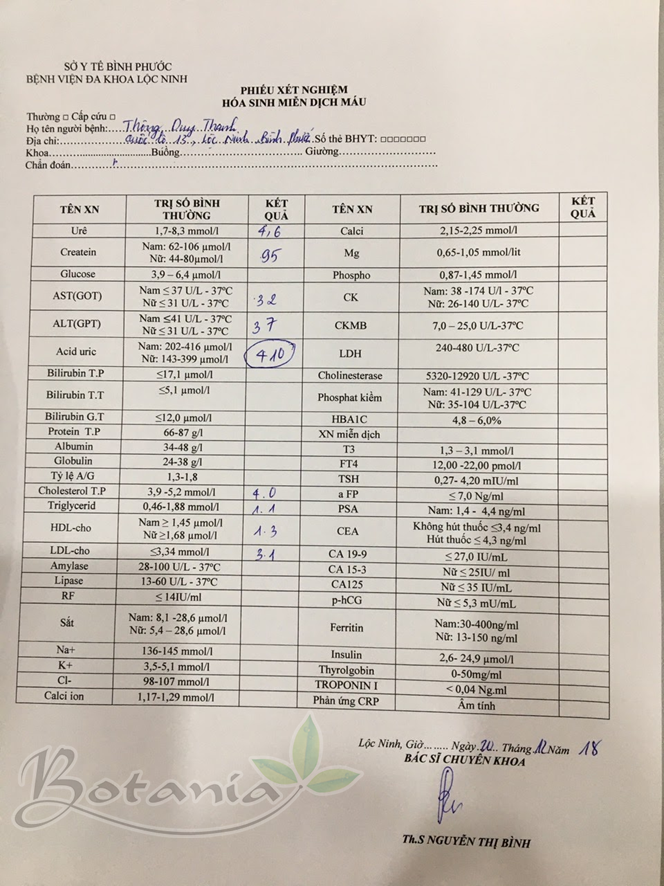 SỞ Y TẾ BÌNH PHƯỚC
BỆNH VIỆN ĐA KHOA LỘC NINH
PHIẾU XÉT NGHIỆM
HÓA SINH MIỄN DỊCH MÁU
Thường □ Cấp cứu □
Họ tên người bệnh:.....Thông Duy Thanh
Địa chỉ:..................Quốc lộ 13., Lộc Ninh Bình Phước Số thẻ BHYT: □□□□□□□
Khoa...............................Buồng...............................Giường.........................
Chẩn đoán
TÊN XN TRỊ SỐ BÌNH THƯỜNG KẾT QUẢ TÊN XN TRỊ SỐ BÌNH THƯỜNG KẾT QUẢ
Urê 1,7-8,3 mmol/l 4,6 Calci 2,15-2,25 mmol/l
Createin Nam: 62-106 µmol/l Nữ: 44-80µmol/l 95 Mg 0,65-1,05 mmol/lit
Glucose 3,9 – 6,4 µmol/l Phospho 0,87-1,45 mmol/l
AST(GOT) Nam ≤ 37 U/L - 37ºC Nữ ≤ 31 U/L - 37ºC 32 CK Nam: 38 -174 U/l - 37ºC Nữ: 26-140 U/L- 37ºC
ALT(GPT) Nam ≤41 U/L - 37ºC Nữ ≤ 31 U/L - 37ºC 37 CKMB 7,0 – 25,0 U/L-37ºC
Acid uric Nam: 202-416 µmol/l Nữ: 143-399 µmol/l 410 LDH 240-480 U/L-37ºC
Bilirubin T.P ≤17,1 µmol/l Cholinesterase 5320-12920 U/L -37ºC
Bilirubin T.T ≤5,1 µmol/l Phosphat kiềm Nam: 41-129 U/L- 37ºC Nữ: 35-104 U/L-37ºC
Bilirubin G.T ≤12,0 µmol/l HBA1C 4,8 – 6,0%
Protein T.P 66-87 g/l XN miễn dịch
Albumin 34-48 g/l T3 1,3 – 3,1 mmol/l
Globulin 24-38 g/l FT4 12,00 -22,00 pmol/l
Tỷ lệ A/G 1,3-1,8 TSH 0,27- 4,20 mIU/ml
Cholesterol T.P 3,9 -5,2 mmol/l 4.0 a FP ≤ 7,0 Ng/ml
Triglycerid 0,46-1,88 mmol/l 1.1 PSA Nam: 1,4 - 4,4 ng/ml
HDL-cho Nam ≥ 1,45 µmol/l Nữ ≥1,68 µmol/l 1.3 CEA Không hút thuốc ≤3,4 ng/ml Hút thuốc ≤ 4,3 ng/ml
LDL-cho ≤3,34 mmol/l 3.1 CA 19-9 ≤ 27,0 IU/mL
Amylase 28-100 U/L - 37ºC CA 15-3 Nữ ≤ 25IU/ ml
Lipase 13-60 U/L - 37ºC CA125 Nữ ≤ 35 IU/mL
RF ≤ 14IU/ml p-hCG Nữ ≤ 5,3 mU/mL
Sắt Nam: 8,1 -28,6 µmol/l Nữ: 5,4 – 28,6 µmol/l Ferritin Nam:30-400ng/ml Nữ: 13-150 ng/ml
Na+ 136-145 mmol/l Insulin 2,6- 24,9 µmol/l
K+ 3,5-5,1 mmol/l Thyrolgobin 0-50mg/ml
Cl- 98-107 mmol/l TROPONIN I < 0,04 Ng.ml
Calci ion 1,17-1,29 mmol/l Phản ứng CRP Âm tính
Lộc Ninh, Giờ........ Ngày 20 Tháng 12 Năm 18
BÁC SĨ CHUYÊN KHOA
Th.S NGUYỄN THỊ BÌNH
Botania